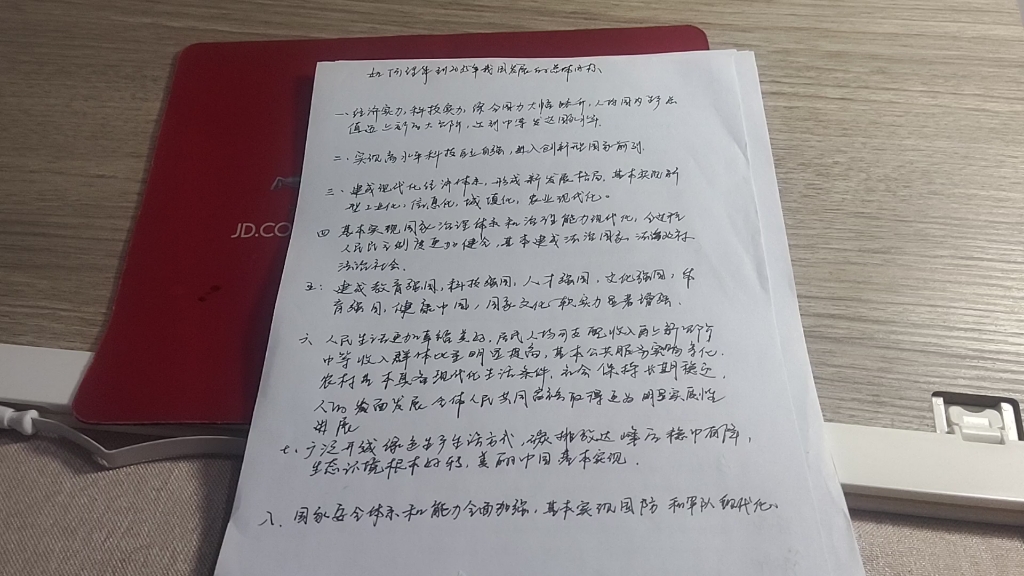 如何理解到2035年我国发展的总体目标
一、经济实力,科技实力,综合国力大幅跃升,人均国内生产总
值迈上新的大台阶,达到中等发达国家水平.
二、实现高水平科技自立自强,进入创新型国家前列.
三、建成现代化经济体系,形成新发展格局,基本实现新
型工业化,信息化,城镇化,农业现代化。
四 基本实现国家治理体系和治理能力现代化,全过程
人民民主制度更加健全,基本建成法治国家,法治政府
法治社会.
五:建成教育强国,科技强国,人才强国,文化强国,体
育强国,健康中国,国家文化软实力显著增强.
六 人民生活更加幸福美好,居民人均可支配收入再上新台阶
中等收入群体比重明显提高,基本公共服务实现均等化.
农村基本具备现代化生活条件,社会保持长期稳定,
人的全面发展 全体人民共同富裕取得更为明显实质性
进展
七、广泛形成绿色生产生活方式,碳排放达峰后稳中有降,
生态环境根本好转,美丽中国基本实现.
八、国家安全体系和能力全面加强,基本实现国防和军队现代化.
JD.CO